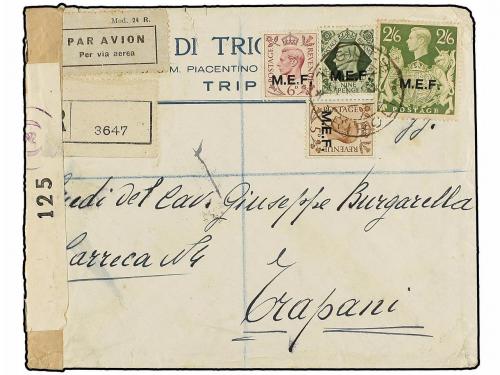 Mod. 24 R.
PAR AVION
Per via aerea
DI TRIC
M. PIACENTINO
TRIP
R 3647
125
POSTAGE REVENUE
6D
M.E.F.
POSTAGE REVENUE
NINE PENCE
M.E.F.
2/6 2/6
M.E.F.
POSTAGE
REVENUE
M.E.F.
Eredi del Cav. Giuseppe Burgarella
Barreca N4
e
Trapani